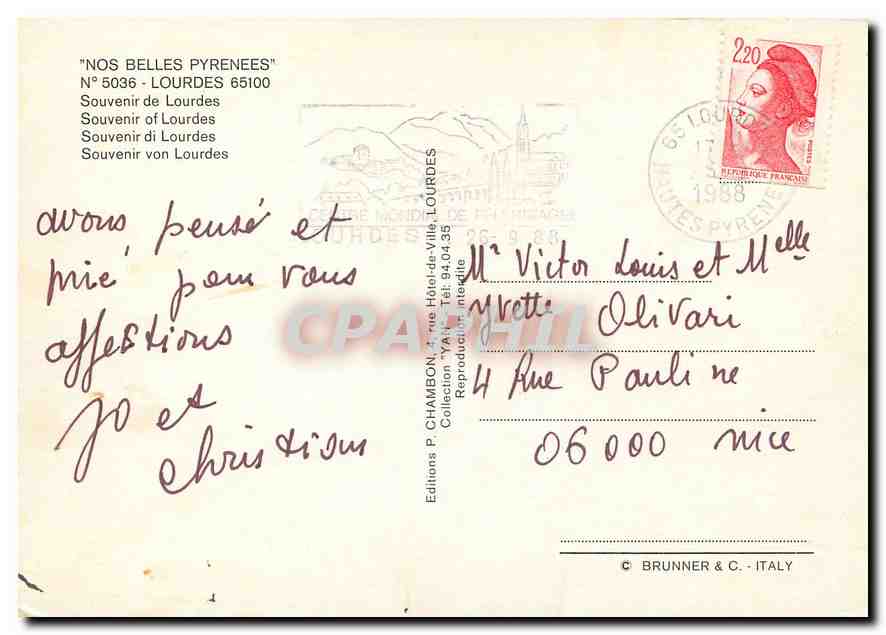 "NOS BELLES PYRENEES"
N° 5036 - LOURDES 65100
Souvenir de Lourdes
Souvenir of Lourdes
Souvenir di Lourdes
Souvenir von Lourdes
avons pensé et
prié pour vous
affections
Jo et
CENTRE MONDIAL DE PELERINAGE
LOURDES 26-9.88
Editions P. CHAMBON, 4, rue Hôtel-de-Ville, LOURDES
Collection "YAN" Tél: 94.04.35
Reproduction interdite
CPAPHIL
2,20
POSTES
REPUBLIQUE FRANÇAISE
65 LOURDES
1988
HAUTES PYRENEES
Mr Victor Louis et Melle
Yvette Olivari
4 Rue Pauline
06000 Nice
© BRUNNER & C. - ITALY